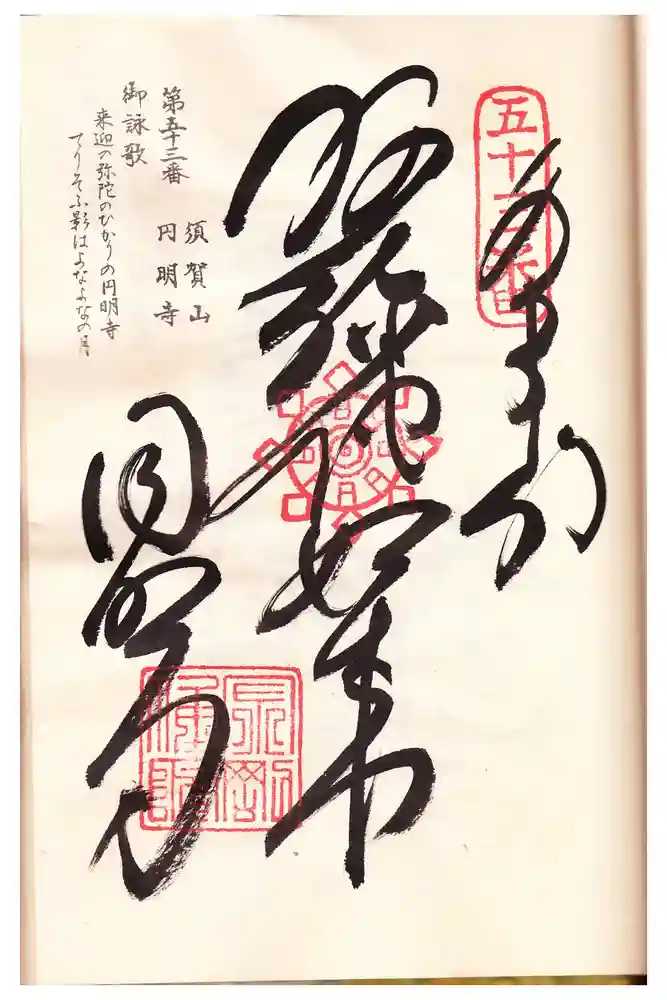 五十三番
阿弥陀如来
円明寺
第五十三番
須賀山
円明寺
御詠歌
来迎の弥陀のひかりの円明寺
てりそふ影はよなよなの月